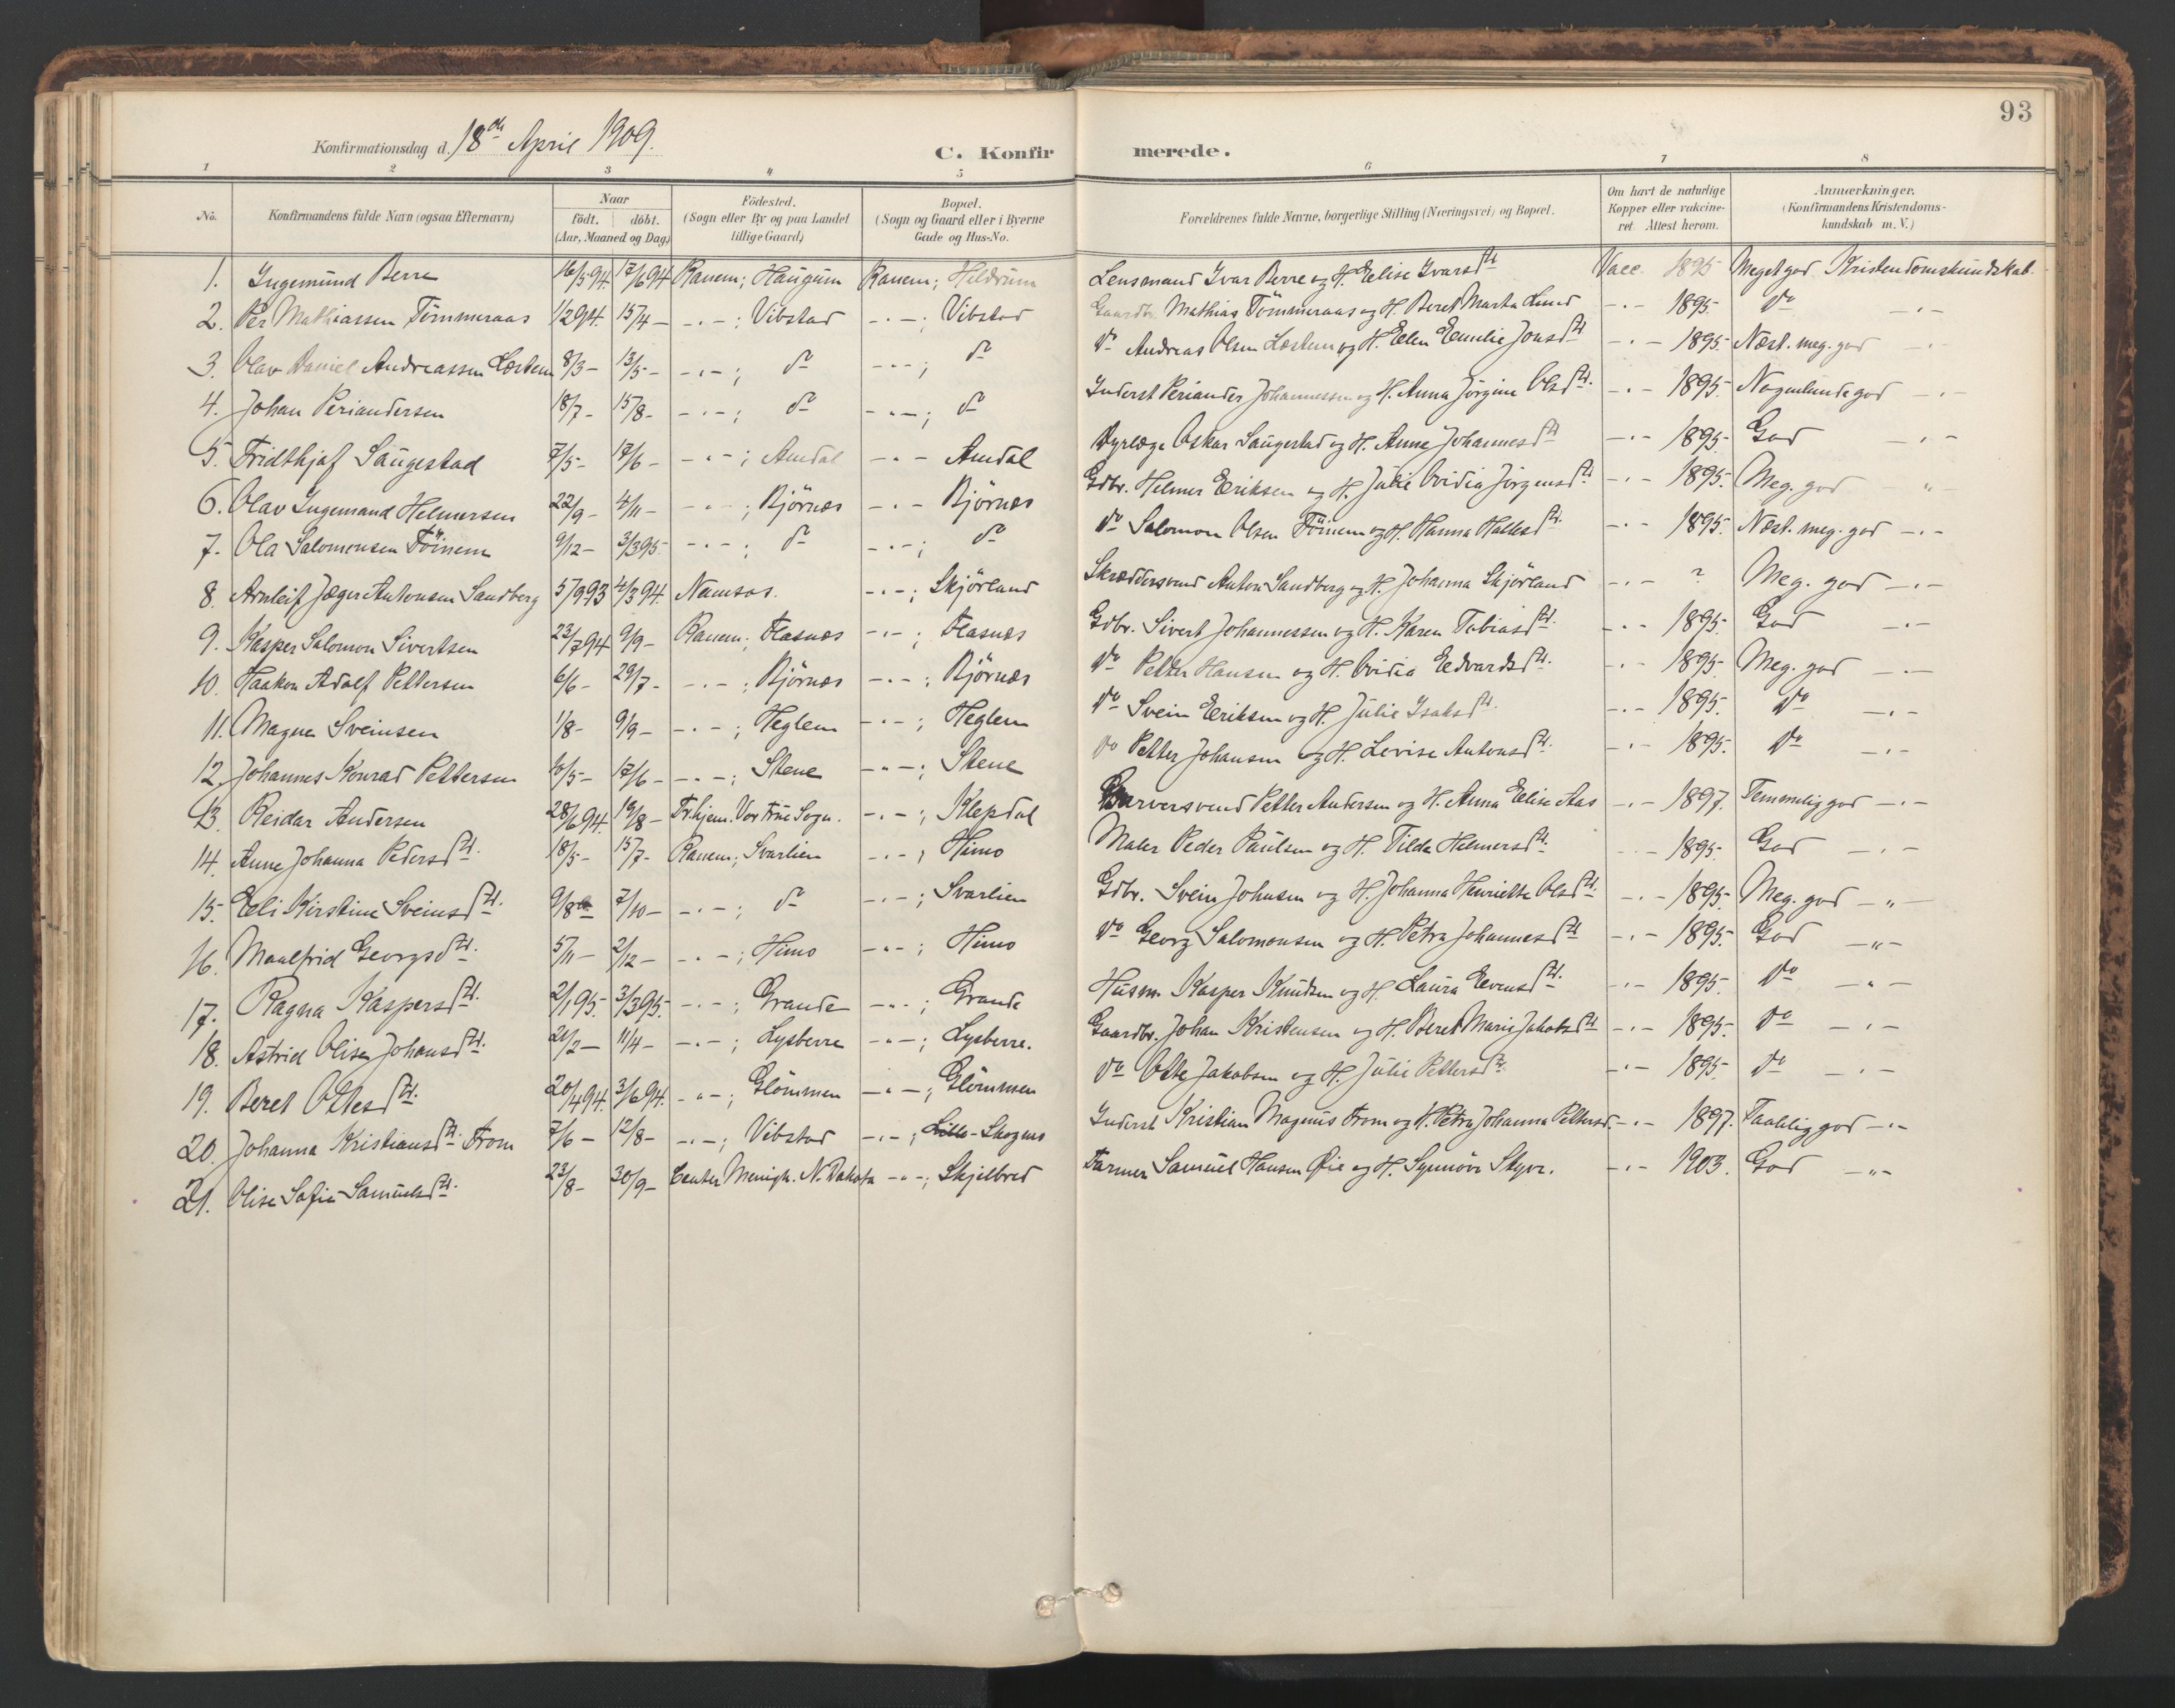 93
Konfirmationsdag d. 18de April 1909.
C. Konfirmerede.
1 2 3 4 5 6 7 8
No. Konfirmandens fulde Navn (ogsaa Efternavn) Naar födt. döbt. (Aar, Maaned og Dag) Födested. (Sogn eller By og paa Landet tillige Gaard) Bopæl. (Sogn og Gaard eller i Byerne Gade og Hus-No. Forældrenes fulde Navne, borgerlige Stilling (Næringsvei) og Bopæl. Om havt de naturlige Kopper eller vakcineret. Attest herom. Anmærkninger. (Konfirmandens Kristendomskundskab m. V.)
1. Ingemund Berre 16/5 94 17/6 94 Ranem; Haugum Ranem; Hildrum Lensmand Ivar Berre og H. Elise Ivarsdtr Vacc. 1895 Meget god Kristendomskundskab.
2. Per Mathiassen Tömmeraas 1/2 94. 15/4 – -.-; Vibstad -.-; Vibstad Gaardbr. Mathias Tömmeraas og H. Beret Marta Lund -.- 1895. do -.-
3. Olav Daniel Andreassen Læstem 8/3 – 13/5 – -.-; do -.-; do do Andreas Olsen Læstem og H. Elen Emilie Jonsdtr -.- 1895. Næst. meg. god -.-
4. Johan Periandersen 18/7 – 15/8 – -.-; do -.-; do Inderst Periander Johannessen og H. Anna Jörgine Olsdtr. -.- 1895. Nogenlunde god -.-
5. Fridthjof Saugestad 7/5 – 17/6 – -.-; Amdal -.- Amdal Dyrlæge Oskar Saugestad og H. Anna Johannesdtr -.- 1895. God -.-
6. Olav Ingemand Helmersen 22/9 – 4/11 – -.-; Björnes -.- Björnes Gdbr. Helmer Eriksen og H. Julie Ovidia Jörgensdtr -.- 1895. Meg. god "
7. Ola Salomonsen Föinem 9/12 – 3/3 95. -.-; do -.-; do do Salomon Olsen Föinem og H. Hanna Hallesdtr. -.- 1895. Næst. meg. god -.-
8. Arnleif Jæger Antonsen Sandberg 5/9 93 4/3 94. Namsos. -.-; Skjörland Skræddersvend Anton Sandberg og H. Johanna Skjörland -.- ? Meg. god -.-
9. Kasper Salomon Sivertsen 23/7 94 9/9 – Ranem; Flasnes -.-; Flasnes Gdbr. Sivert Johannessen og H. Karen Tobiasdtr. -.- 1895. God -.-
10. Haakon Adolf Pettersen 6/6 – 29/7 – -.-; Björnes -.-; Björnes do Petter Hansen og H. Ovidia Edvardsdtr. -.- 1895. Meg. god -.-
11. Magne Sveinsen 1/8 – 9/9 – -.-; Heglem -.-; Heglem do Svein Eriksen og H. Julie Isaksdtr. -.- 1895. do -.-
12. Johannes Konrad Pettersen 10/5 – 17/6 – -.-; Stene -.-; Stene do Petter Johansen og H. Levise Antonsdtr. -.- 1895. do -.-
13. Reidar Andersen 28/6 94. 19/8 – Tr.hjem. Vor Frue Sogn. -.-; Klepdal Garversvend Petter Andersen og H. Anna Elise Aas -.- 1897. Temmelig god -.-
14. Anne Johanna Pedersdtr. 18/5 – 15/7 – Ranem; Svarlien -.-; Himo Maler Peder Paulsen og H. Tilda Helmersdtr. 1895. God -.-
15. Eli Kirstine Sveinsdtr. 9/8 7/10 – -.-; do -.-; Svarlien Gdbr. Svein Johnsen og H. Johanna Henriette Olsdtr. -.- 1895. Meg. god -"-
16. Maalfrid Georgsdtr. 5/11 – 2/12 – -.-; Himo -.-; Himo do Georg Salomonsen og H. Petra Johannesdtr -.- 1895. God -"-
17. Ragna Kaspersdtr. 2/1 95. 3/3 95. -.-; Grande -.-; Grande Husm. Kasper Knudsen og H. Laura Evensdtr. -.- 1895. do -"-
18. Astrid Olise Johansdtr. 21/2 – 11/4 – -.-; Lysberre -.-; Lysberre. Gaardbr. Johan Kristensen og H. Beret Marie Jakobsdtr -.- 1895. do -.-
19. Beret Ottesdtr. 20/4 94. 3/6 94. -.-; Glömmen -.-; Glömmen do Otte Jakobsen og H. Julie Pettersdtr. -.- 1895. do -.-
20. Johanna Kristiansdtr. From 7/6 – 12/8 – -.-; Vibstad -.-; Lille-Skogmo Inderst Kristian Magnus From og H. Petra Johanna Pettersd. -.- 1897. Taalelig god -.-
21. Olise Sofie Samuelsdtr. 23/8 – 30/9 – Center Menigh. N. Dakota -.-; Skjelbred Farmer Samuel Hansen Øie og H. Synnöve Styve. -.- 1903. God -"-